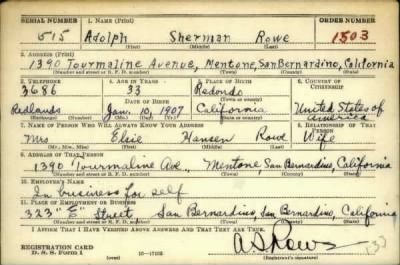 SERIAL NUMBER 1. NAME (Print) ORDER NUMBER
515 Adolph Sherman Rowe 1503
(First) (Middle) (Last)
2. ADDRESS (Print)
1390 Tourmaline Avenue, Mentone, San Bernardino, California
(Number and street or R. F. D. number) (Town) (County) (State)
3. TELEPHONE 4. AGE IN YEARS 5. PLACE OF BIRTH 6. COUNTRY OF CITIZENSHIP
3686 33 Redondo
DATE OF BIRTH (Town or county)
Redlands Jan. 19, 1907 California United States of America
(Exchange) (Number) (Mo.) (Day) (Yr.) (State or country)
7. NAME OF PERSON WHO WILL ALWAYS KNOW YOUR ADDRESS 8. RELATIONSHIP OF THAT PERSON
Mrs Elsie Hansen Rowe Wife
(Mr., Mrs., Miss) (First) (Middle) (Last)
9. ADDRESS OF THAT PERSON
1390 Tourmaline Ave., Mentone, San Bernardino, California
(Number and street or R. F. D. number) (Town) (County) (State)
10. EMPLOYER'S NAME
In business for self
11. PLACE OF EMPLOYMENT OR BUSINESS
323 "E" Street, San Bernardino, San Bernardino, California
(Number and street or R. F. D. number) (Town) (County) (State)
I AFFIRM THAT I HAVE VERIFIED ABOVE ANSWERS AND THAT THEY ARE TRUE.
REGISTRATION CARD
D. S. S. Form 1
(over)
A S Rowe
(Registrant's signature)